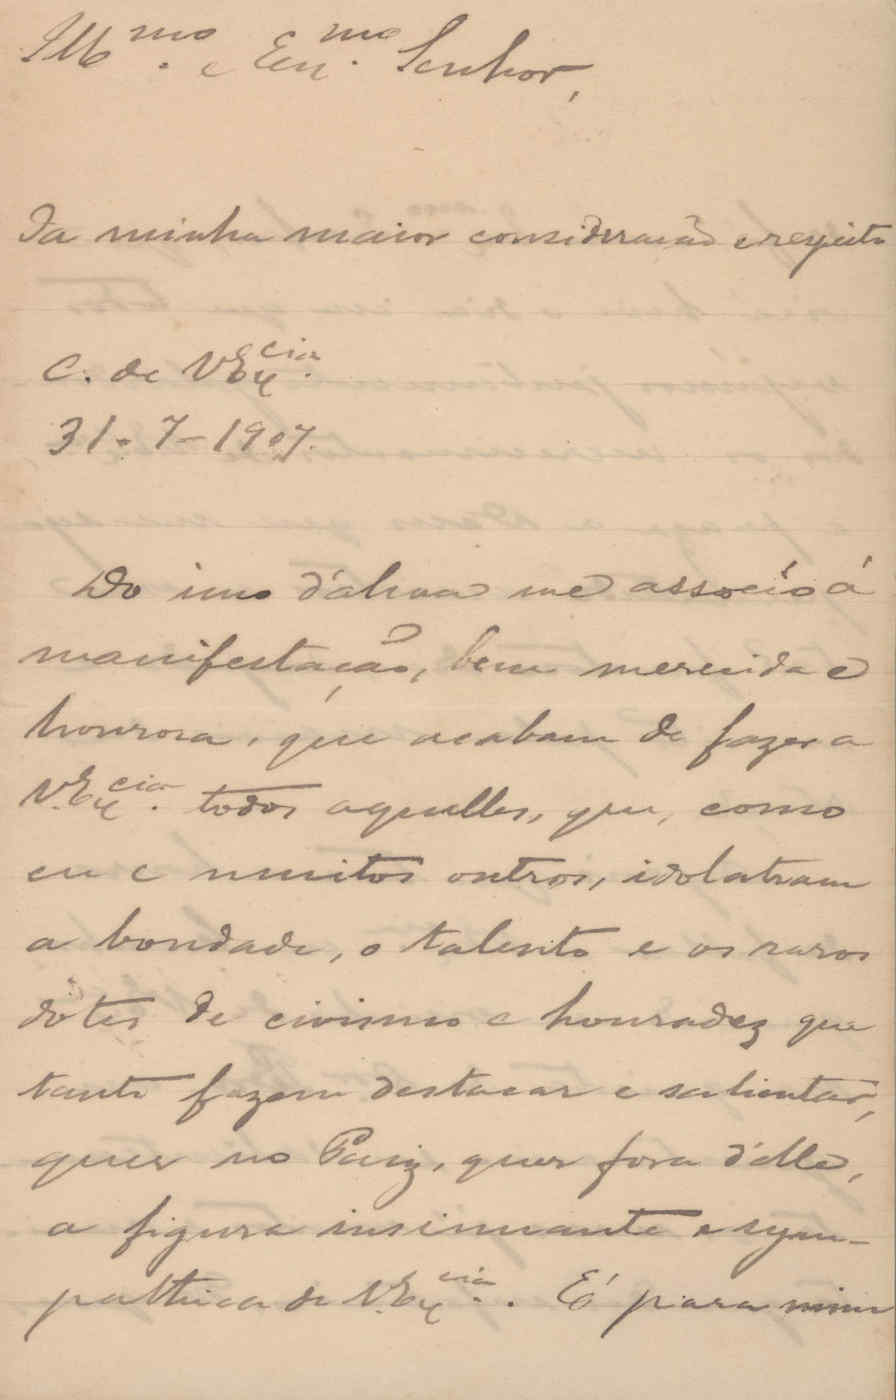 Ill.mo e Exm.mo Senhor,
Da minha maior consideração e respeito
C. de V.Ex.cia
31-7-1907.
Do imo d'alma me associo á
manifestação, bem merecida e
honrosa, que acabam de fazer a
V.Ex.cia todos aquelles, que, como
eu e muitos outros, idolatram
a bondade, o talento e os raros
dotes de civismo e honradez que
tanto fazem destacar e salientar,
quer no Paiz, quer fora d'elle,
a figura insinuante e sym-
pathica de V.Ex.cia. É para mim